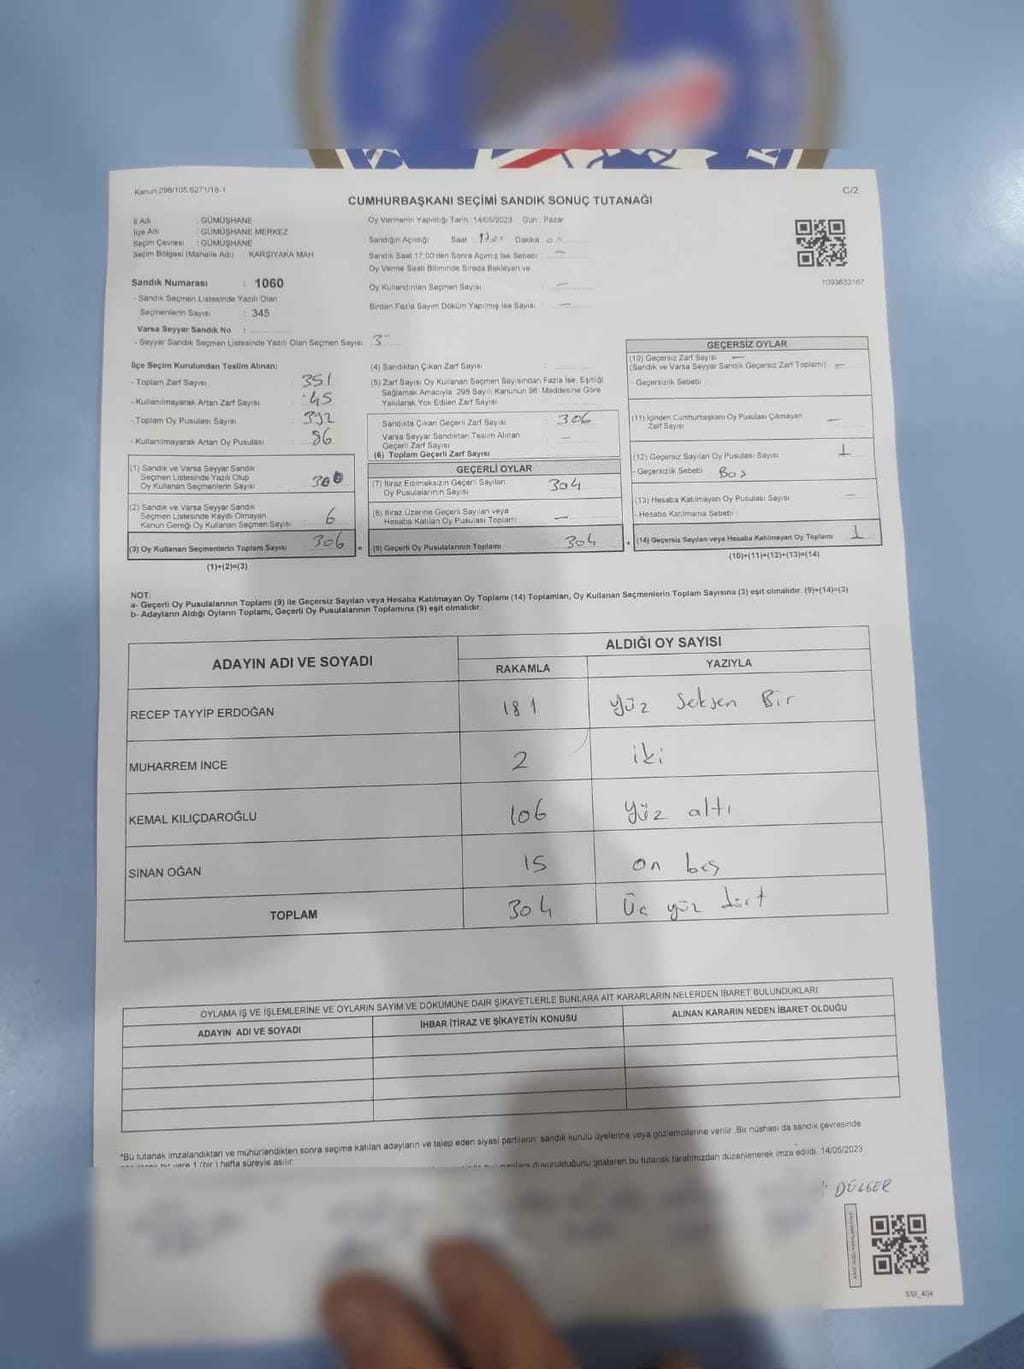 Kanun:298/105;6271/18-1
C/2
CUMHURBAŞKANI SEÇİMİ SANDIK SONUÇ TUTANAĞI
İl Adı : GÜMÜŞHANE
İlçe Adı : GÜMÜŞHANE MERKEZ
Seçim Çevresi : GÜMÜŞHANE
Seçim Bölgesi (Mahalle Adı) : KARŞIYAKA MAH.
Sandık Numarası : 1060
- Sandık Seçmen Listesinde Yazılı Olan
Seçmenlerin Sayısı : 345
Varsa Seyyar Sandık No :
- Seyyar Sandık Seçmen Listesinde Yazılı Olan Seçmen Sayısı : 3
Oy Vermenin Yapıldığı Tarih : 14/05/2023 Gün : Pazar
Sandığın Açıldığı Saat Dakika
Sandık Saat 17:00'den Sonra Açılmış İse Sebebi : —
Oy Verme Saati Bitiminde Sırada Bekleyen ve
Oy Kullandırılan Seçmen Sayısı : —
Birden Fazla Sayım Döküm Yapılmış İse Sayısı : —
1093633167
İlçe Seçim Kurulundan Teslim Alınan;
- Toplam Zarf Sayısı : 351
- Kullanılmayarak Artan Zarf Sayısı : 45
- Toplam Oy Pusulası Sayısı : 392
- Kullanılmayarak Artan Oy Pusulası : 86
(1) Sandık ve Varsa Seyyar Sandık
Seçmen Listesinde Yazılı Olup
Oy Kullanan Seçmenlerin Sayısı : 300
(2) Sandık ve Varsa Seyyar Sandık
Seçmen Listesinde Kayıtlı Olmayan
Kanun Gereği Oy Kullanan Seçmen Sayısı : 6
(3) Oy Kullanan Seçmenlerin Toplam Sayısı : 306
(1)+(2)=(3)
(4) Sandıktan Çıkan Zarf Sayısı :
(5) Zarf Sayısı Oy Kullanan Seçmen Sayısından Fazla İse, Eşitliği
Sağlamak Amacıyla, 298 Sayılı Kanunun 98. Maddesine Göre
Yakılarak Yok Edilen Zarf Sayısı :
Sandıkta Çıkan Geçerli Zarf Sayısı : 306
Varsa Seyyar Sandıktan Teslim Alınan
Geçerli Zarf Sayısı : —
(6) Toplam Geçerli Zarf Sayısı :
GEÇERLİ OYLAR
(7) İtiraz Edilmeksizin Geçerli Sayılan
Oy Pusulalarının Sayısı : 304
(8) İtiraz Üzerine Geçerli Sayılan veya
Hesaba Katılan Oy Pusulası Toplamı : —
(9) Geçerli Oy Pusulalarının Toplamı : 304
GEÇERSİZ OYLAR
(10) Geçersiz Zarf Sayısı —
(Sandık ve Varsa Seyyar Sandık Geçersiz Zarf Toplamı) : —
- Geçersizlik Sebebi :
(11) İçinden Cumhurbaşkanı Oy Pusulası Çıkmayan
Zarf Sayısı : —
(12) Geçersiz Sayılan Oy Pusulası Sayısı : 1
- Geçersizlik Sebebi : Boş
(13) Hesaba Katılmayan Oy Pusulası Sayısı : —
- Hesaba Katılmama Sebebi :
(14) Geçersiz Sayılan veya Hesaba Katılmayan Oy Toplamı : 1
(10)+(11)+(12)+(13)=(14)
NOT:
a- Geçerli Oy Pusulalarının Toplamı (9) ile Geçersiz Sayılan veya Hesaba Katılmayan Oy Toplamı (14) Toplamları, Oy Kullanan Seçmenlerin Toplam Sayısına (3) eşit olmalıdır. (9)+(14)=(3)
b- Adayların Aldığı Oyların Toplamı, Geçerli Oy Pusulalarının Toplamına (9) eşit olmalıdır.
ADAYIN ADI VE SOYADI ALDIĞI OY SAYISI
RAKAMLA YAZIYLA
RECEP TAYYİP ERDOĞAN 181 Yüz Seksen Bir
MUHARREM İNCE 2 iki
KEMAL KILIÇDAROĞLU 106 Yüz altı
SİNAN OĞAN 15 on beş
TOPLAM 304 Üç yüz dört
OYLAMA İŞ VE İŞLEMLERİNE VE OYLARIN SAYIM VE DÖKÜMÜNE DAİR ŞİKAYETLERLE BUNLARA AİT KARARLARIN NELERDEN İBARET BULUNDUKLARI
ADAYIN ADI VE SOYADI İHBAR İTİRAZ VE ŞİKAYETİN KONUSU ALINAN KARARIN NEDEN İBARET OLDUĞU
*Bu tutanak imzalandıktan ve mühürlendikten sonra seçime katılan adayların ve talep eden siyasi partilerin, sandık kurulu üyelerine veya gözlemcilerine verilir. Bir nüshası da sandık çevresinde
1 (bir) hafta süreyle asılır.
duyurulduğunu gösteren bu tutanak tarafımızdan düzenlenerek imza edildi. 14/05/2023
DÜLGER
SSI_404